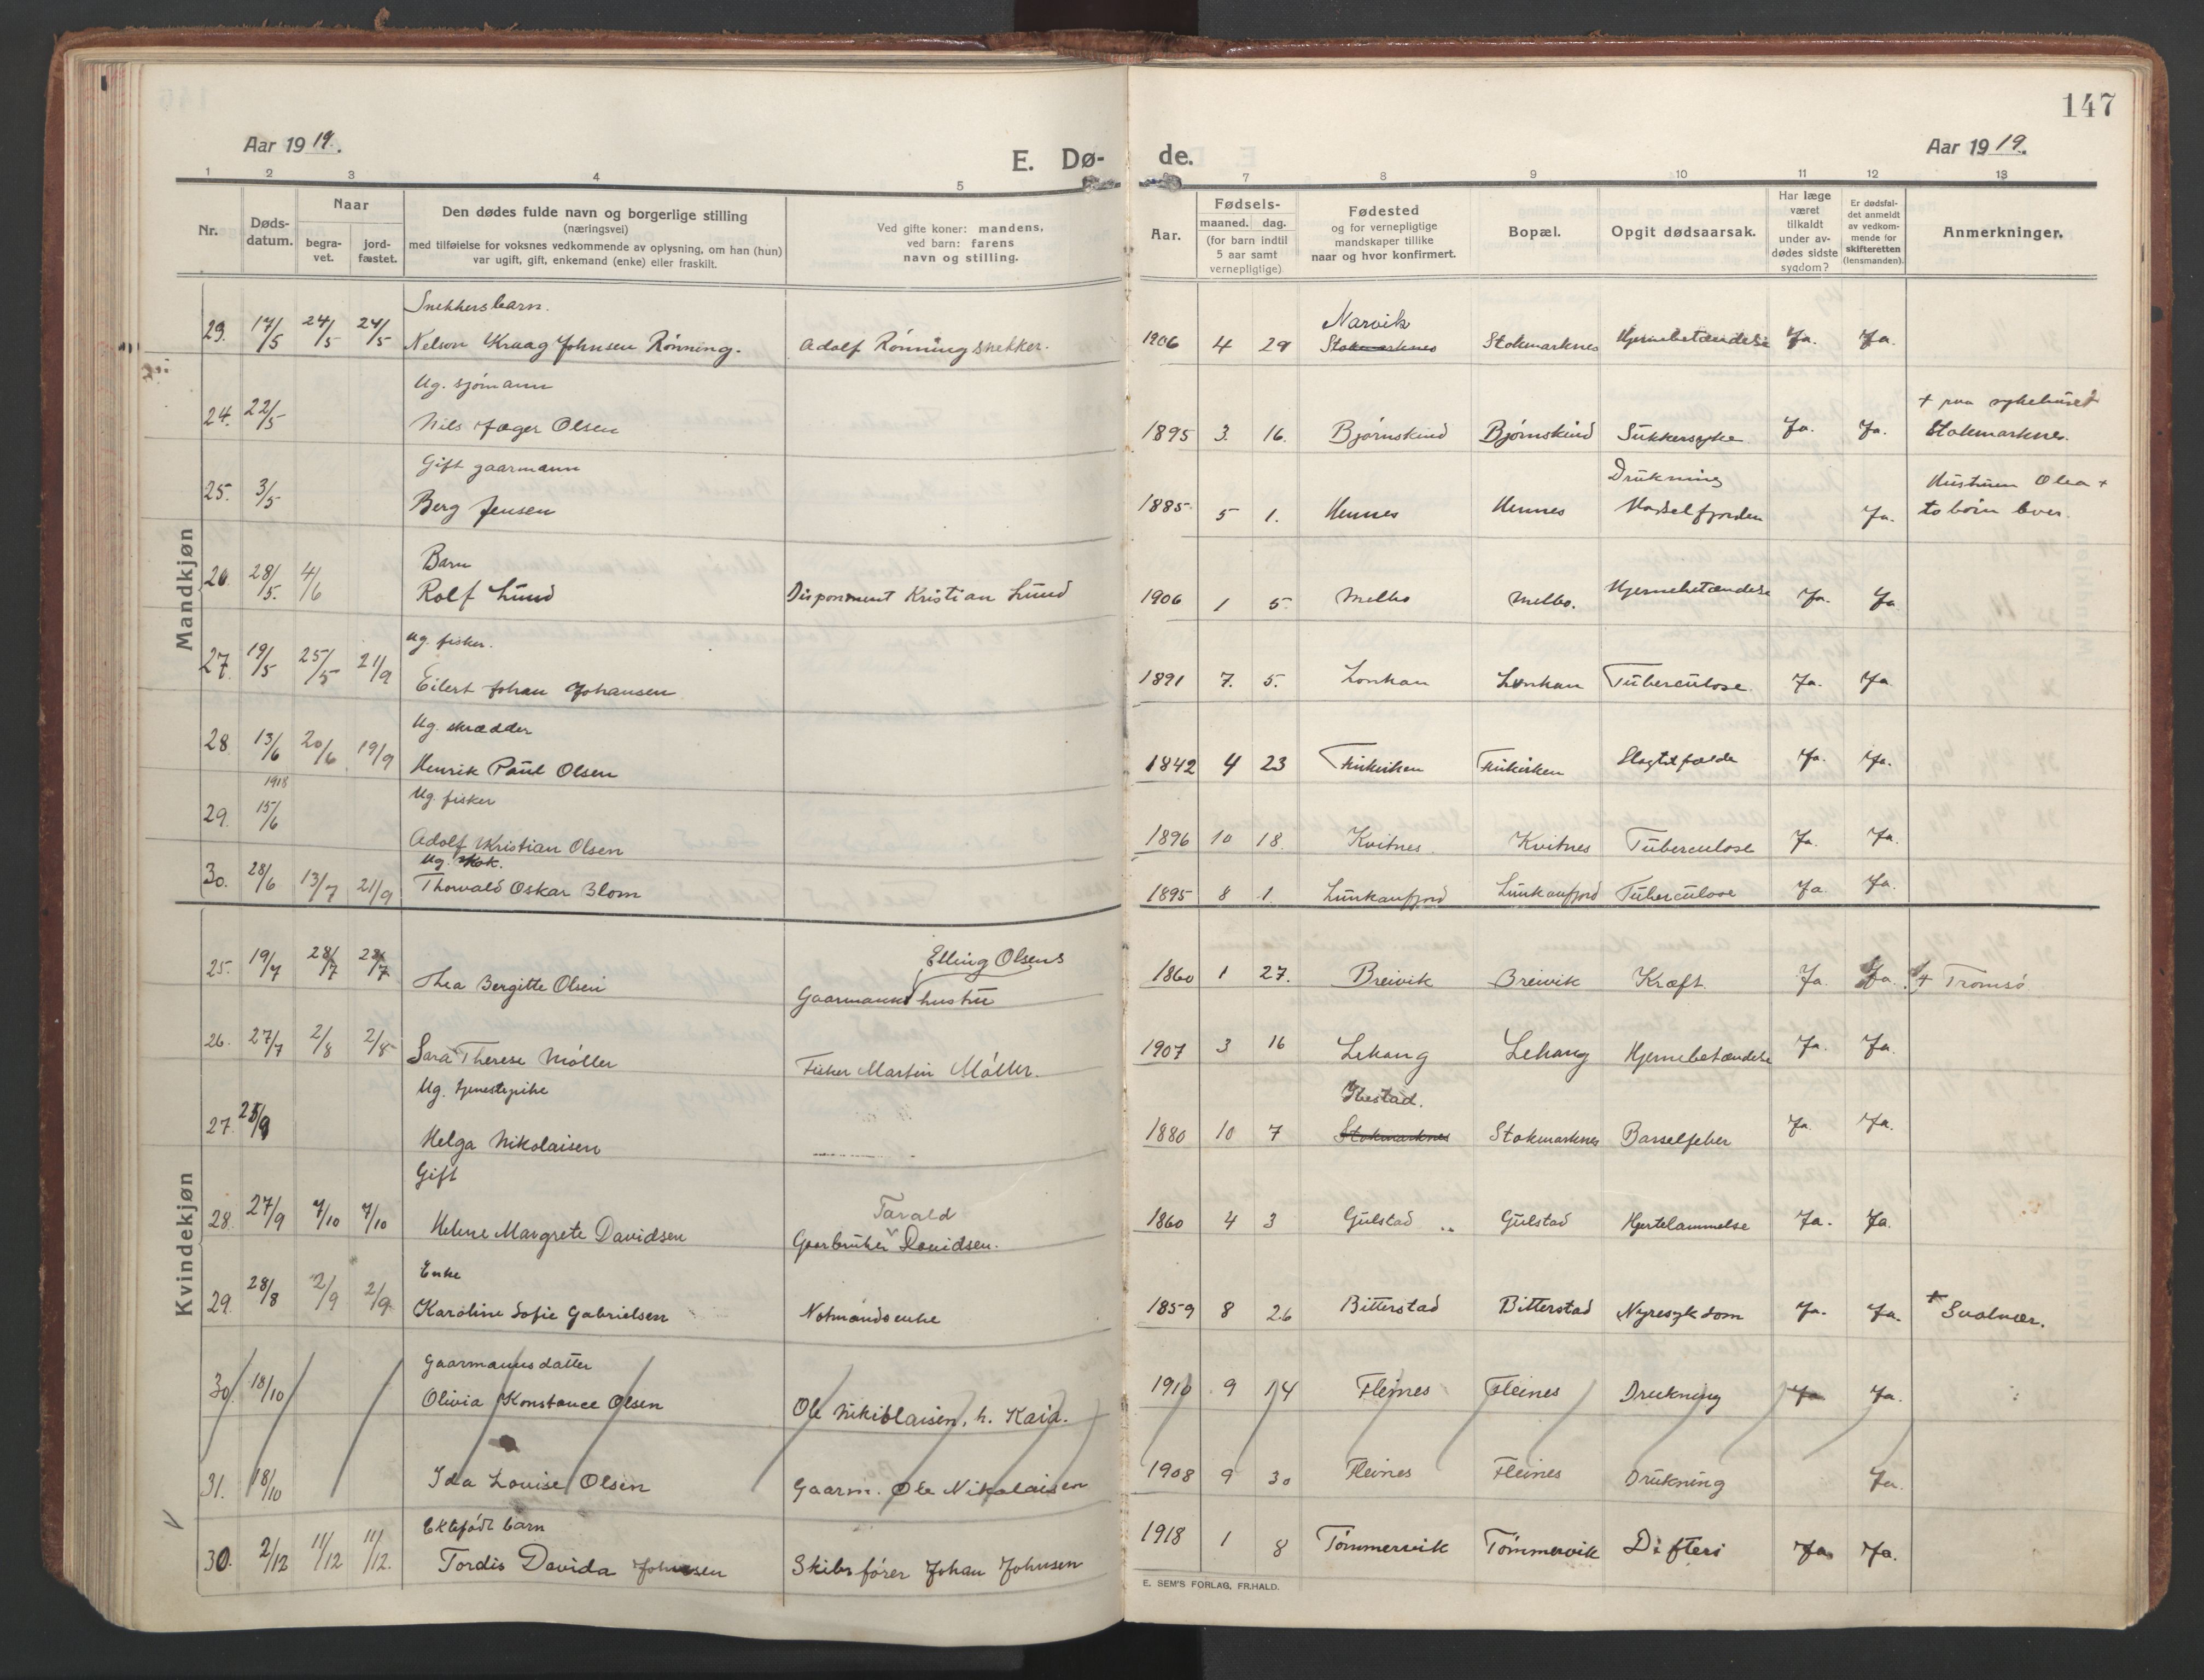 147
Aar 1919.
E. Dø-
de.
Aar 1919.
1 2 3 4 5 7 8 9 10 11 12 13
Nr.
Døds-
datum.
Naar
begra-
vet.
jord-
fæstet.
Den dødes fulde navn og borgerlige stilling
(næringsvei)
med tilføielse for voksnes vedkommende av oplysning, om han (hun)
var ugift, gift, enkemand (enke) eller fraskilt.
Ved gifte koner: mandens,
ved barn: farens
navn og stilling.
Aar.
Fødsels-
maaned. dag.
(for barn indtil
5 aar samt
vernepligtige)
Fødested
og for vernepligtige
mandskaper tillike
naar og hvor konfirmert.
Bopæl.
Opgit dødsaarsak.
Har læge
været
tilkaldt
under av-
dødes sidste
sygdom?
Er dødsfal-
det anmeldt
av vedkom-
mende for
skifteretten
(lensmanden).
Anmerkninger.
Mandkjøn
Snekkersbarn.
Narvik
23. 17/5 24/5 24/5 Nelson Kraag Johnsen Rønning. Adolf Rønning snekker. 1906 4 29 Stokmarknes Stokmarknes Hjernebetændelse Ja. Ja.
Ug. sjømann
+ paa sykehuset
24. 22/5 Nils Jæger Olsen 1895 3. 16. Bjørnskind Bjørnskind Sukkersyke Ja. Ja. Stokmarknes.
Gift gaarmann
Drukning
Hustruen Olea +
25. 3/5 Berg Jensen 1885 5 1. Hennes Hennes Hadselfjorden Ja. to børn lever.
Barn
26 28/5. 4/6 Rolf Lund Disponment Kristian Lund 1906 1 5. Melbo Melbo. Hjernebetændelse Ja. Ja
Ug. fisker.
27. 19/5 25/5 21/9 Eilert Johan Johansen 1891 7. 5. Lonkan Lonkan Tuberculose Ja. Ja
Ug. skrædder
28 13/6 20/6 19/9 Henrik Paul Olsen 1842 4 23 Frikirken Frikirken Slagtilfælde Ja. Ja.
1918
Ug. fisker
29. 15/6 Adolf Kristian Olsen 1896 10 18. Kvitnes Kvitnes Tuberculose Ja. Ja.
Ug. kok.
30. 28/6 13/7 21/9 Thorvald Oskar Blom 1895 8 1. Lunkanfjord Lunkanfjord Tuberculose Ja. Ja.
Kvindekjøn
Elling Olsens
25. 19/7 28/7 28/7 Thea Bergitte Olsen Gaarmanns hustru 1860 1 27. Breivik Breivik Kræft Ja. Ja. + Tromsø
26. 27/7 2/8 2/8 Sara Therese Møller Fisker Martin Møller. 1907 3 16 Lekang Lekang Hjernebetændelse Ja. Ja.
Ug. tjenestepike
Ibestad.
27. 25/9 Helga Nikolaisen 1880 10 7 Stokmarknes Stokmarknes Barselfeber Ja Ja.
Gift
Tarald
28. 27/9 7/10 7/10 Helene Margrete Davidsen Gaarbruker Davidsen. 1860 4 3 Gulstad Gulstad Hjertelammelse Ja. Ja.
Enke
29. 28/8 2/9 2/9 Karoline Sofie Gabrielsen Notmandsenke 1859 8 26 Bitterstad Bitterstad Nyresykdom Ja. Ja. + Svolvær.
Gaarmannsdatter
30 18/10 Olivia Konstance Olsen Ole Nikolaisen, h. Kaia. 1910 9 14 Fleines Fleines Drukning Ja Ja.
31. 18/10 Ida Louise Olsen Gaarm. Ole Nikolaisen 1908 9 30 Fleines Fleines Drukning Ja.
Ektefødt barn
30. 2/12 11/12 11/12. Tordis Davida Johnsen Skibsfører Johan Johnsen 1918 1 8 Tømmervik Tømmervik Difteri Ja Ja.
E. SEM'S FORLAG, FR.HALD.